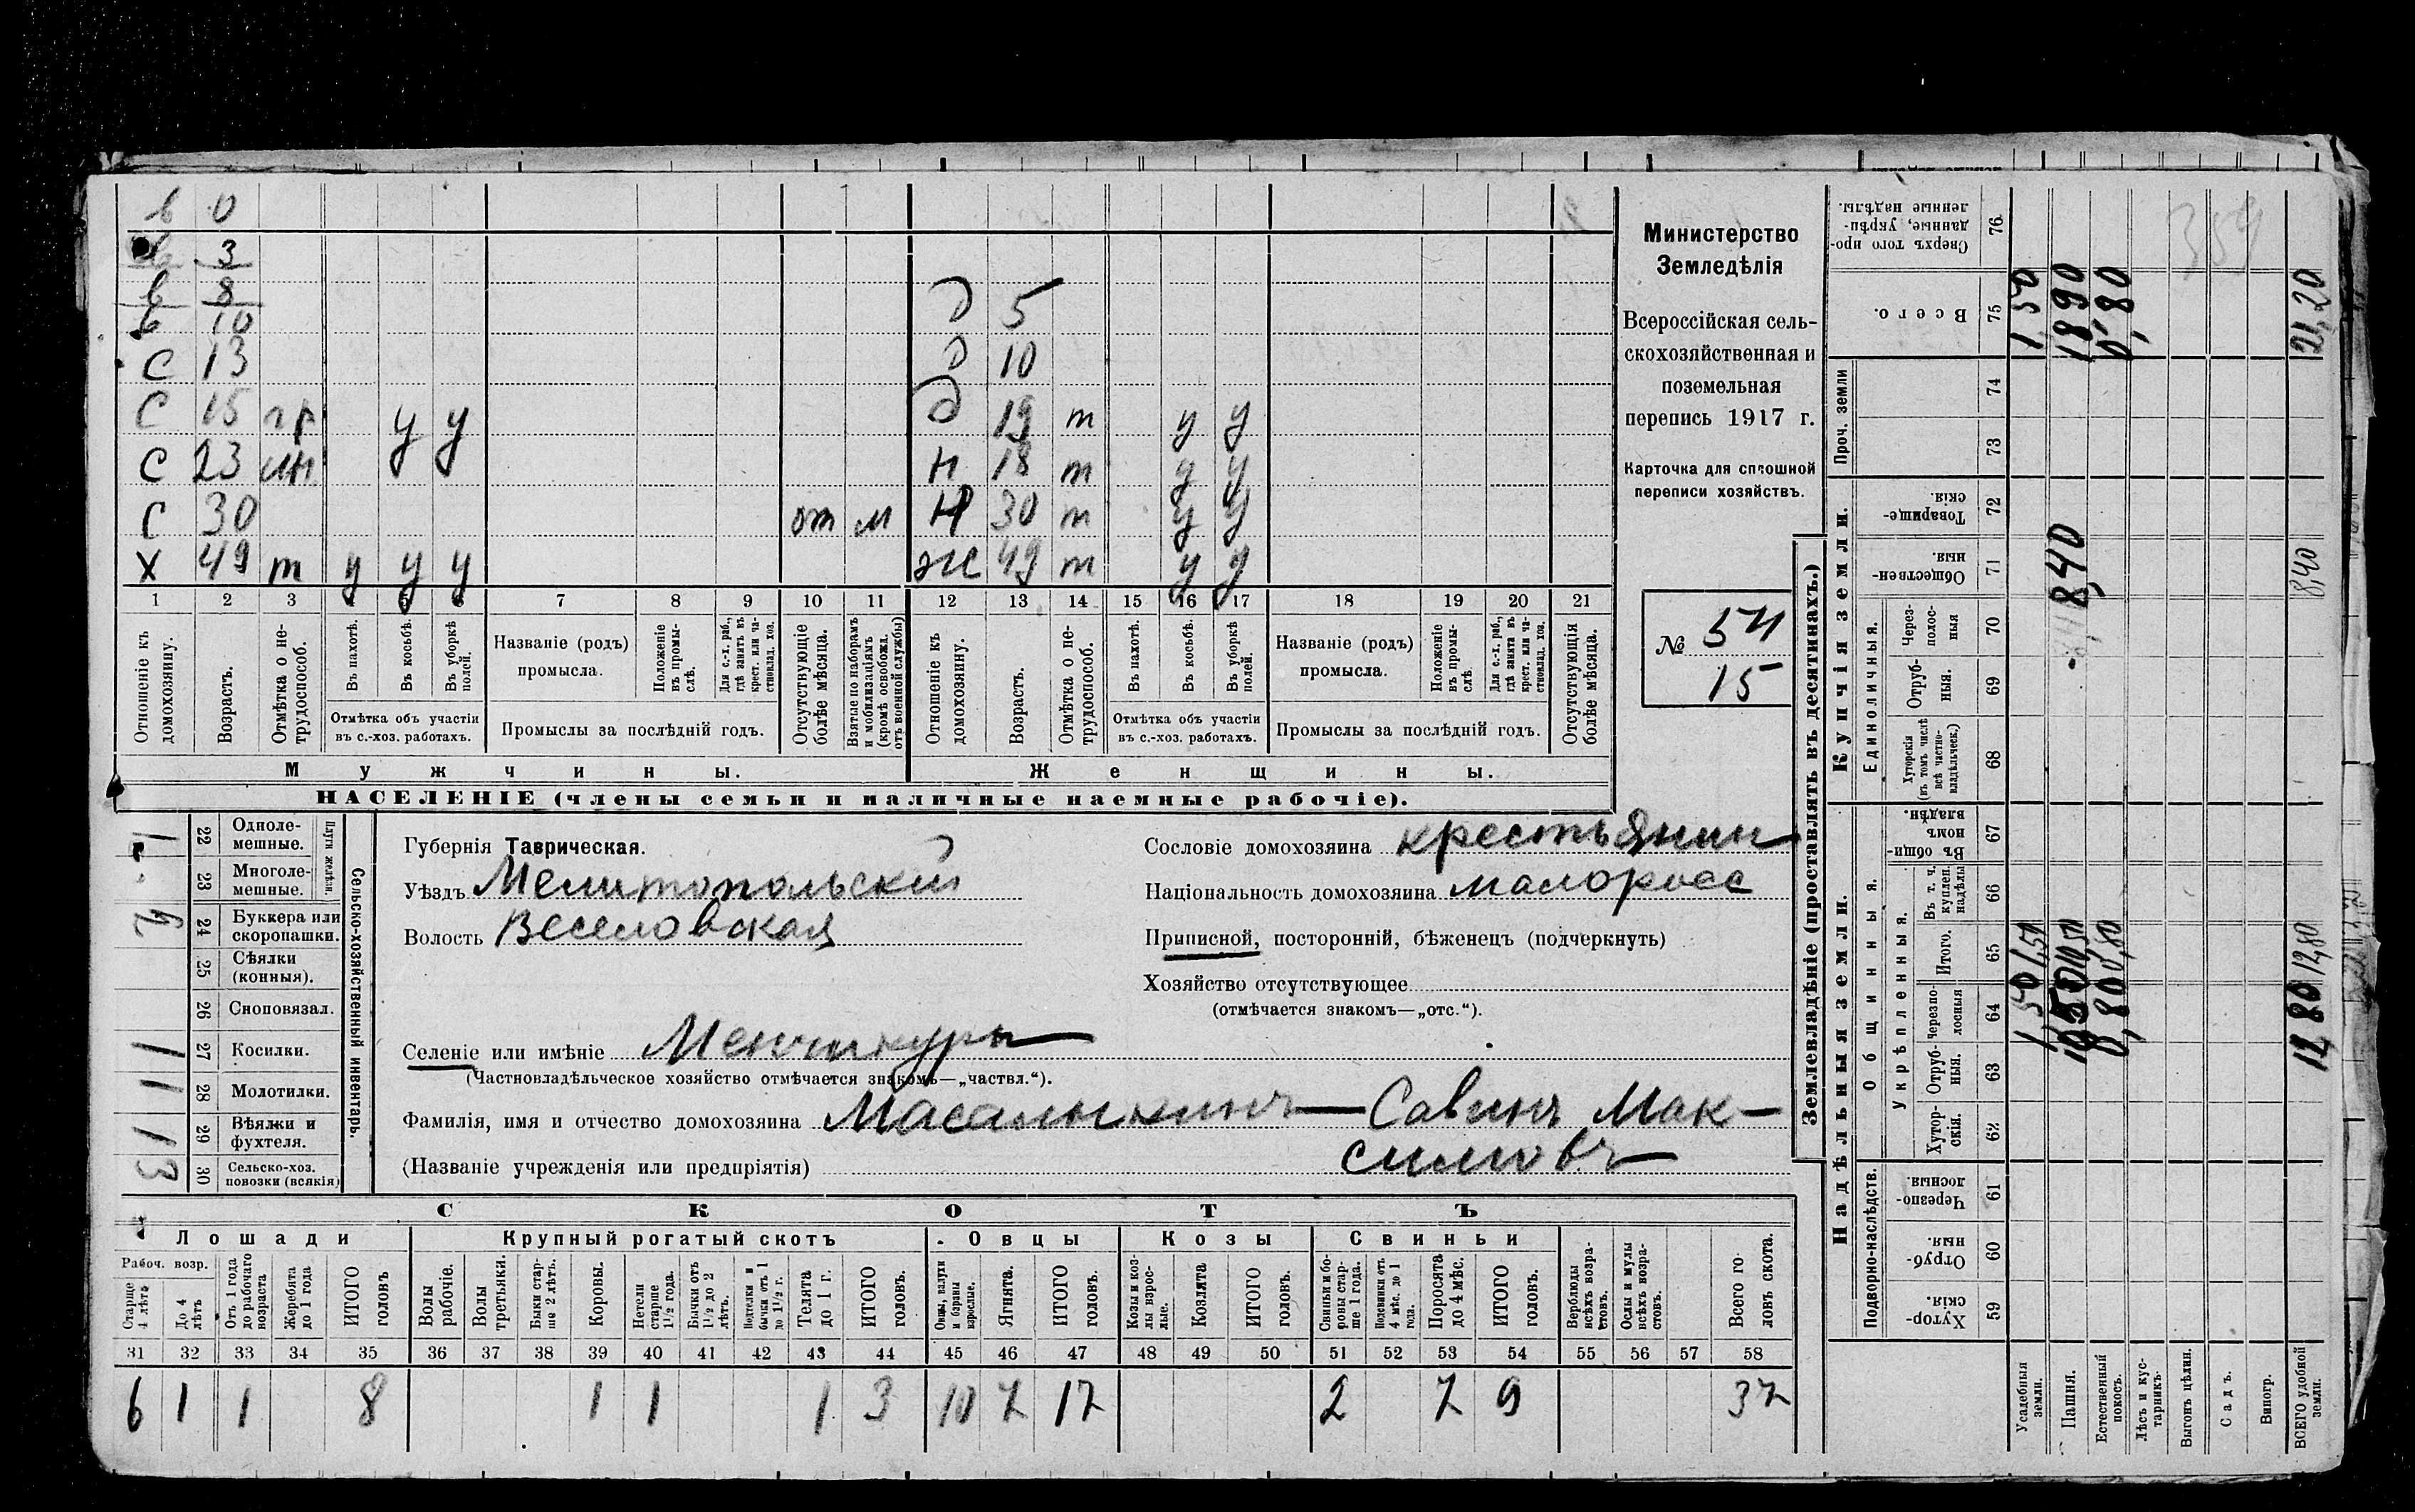 в 0
в 3
в 8 д 5
в 10
С 13 д 10
С 15 гр у у д 19 т у у
С 23 ин Н 18 т у у
С 30 от м Н 30 т у у
Х 49 т у у у Ж 49 т у у
1 2 3 4 5 6 7 8 9 10 11 12 13 14 15 16 17 18 19 20 21
Отношеніе къ домохозяину.
Возрастъ.
Отмѣтка о нетрудоспособ.
Въ пахотѣ.
Въ косьбѣ.
Въ уборкѣ полей.
Отмѣтка объ участіи
въ с.-хоз. работахъ.
Названіе (родъ)
промысла.
Положеніе въ промыслѣ.
Для с.-х. раб., гдѣ занятъ въ крест. или частновлад. хоз.
Промыслы за послѣдній годъ.
Отсутствующіе болѣе мѣсяца.
Взятые по наборамъ и мобилизаціямъ (кромѣ освобожд. отъ военной службы)
Отношеніе къ домохозяину.
Возрастъ.
Отмѣтка о нетрудоспособ.
Въ пахотѣ.
Въ косьбѣ.
Въ уборкѣ полей.
Отмѣтка объ участіи
въ с.-хоз. работахъ.
Названіе (родъ)
промысла.
Положеніе въ промыслѣ
Для с.-х. раб., гдѣ занята въ крест. или частновлад. хоз.
Промыслы за послѣдній годъ.
Отсутствующія болѣе мѣсяца.
Мужчины. Женщины.
НАСЕЛЕНІЕ (члены семьи и наличные наемные рабочіе).
Министерство
Земледѣлія
Всероссійская сель-
скохозяйственная и
поземельная
перепись 1917 г.
Карточка для сплошной
переписи хозяйствъ.
№ 54
15
Сельско-хозяйственный инвентарь.
Плуги желѣзн.
22 Одноле-
мешные.
1 23 Многоле-
мешные.
2 24 Буккера или
скоропашки.
25 Сѣялки
(конныя).
26 Сноповязал.
1 27 Косилки.
1 28 Молотилки.
1 29 Вѣялки и
фухтеля.
3 30 Сельско-хоз.
повозки (всякія)
Губернія Таврическая.
Уѣздъ Мелитопольский
Волость Веселовская
Селеніе или имѣніе Менчикуры
(Частновладѣльческое хозяйство отмѣчается знакомъ—„частвл.“).
Сословіе домохозяина крестьянин
Національность домохозяина малоросс
Приписной, посторонній, бѣженецъ (подчеркнуть)
Хозяйство отсутствующее
(отмѣчается знакомъ—„отс.“).
Фамилія, имя и отчество домохозяина Масалыкинъ Савинъ Мак-
(Названіе учрежденія или предпріятія) симовъ
СКОТЪ
Лошади Крупный рогатый скотъ Овцы Козы Свиньи
Рабоч. возр.
Старше 4 лѣтъ
До 4 лѣтъ
Отъ 1 года до рабочаго возраста
Жеребята до 1 года
ИТОГО головъ
Волы рабочіе.
Волы третьяки.
Быки старше 2 лѣтъ.
Коровы.
Нетели старше 1½ года.
Бычки отъ 1½ до 2 лѣтъ.
Подтелки и бычки отъ 1 до 1½ г.
Телята до 1 г.
ИТОГО головъ.
Овцы, валухи и бараны взрослые.
Ягнята.
ИТОГО головъ.
Козы и козлы взрослые.
Козлята
ИТОГО головъ.
Свиньи и боровы старше 1 года.
Подсвинки отъ 4 мѣс. до 1 года.
Поросята до 4 мѣс.
ИТОГО головъ.
Верблюды всѣхъ возрастовъ.
Ослы и мулы всѣхъ возрастовъ.
Всего головъ скота.
31 32 33 34 35 36 37 38 39 40 41 42 43 44 45 46 47 48 49 50 51 52 53 54 55 56 57 58
6 1 1 8 1 1 1 3 10 7 17 2 7 9 37
Землевладѣніе (проставлять въ десятинахъ.)
Надѣльныя земли. Купчія земли. Проч. земли
Подворно-наслѣдств.
Общинныя.
Укрѣпленныя.
Единоличныя.
Сверхъ того проданные, укрѣпленные надѣлы. 76
Всего. 75
74
73
Товарищескія. 72
Общественныя. 71
Черезполосныя 70
Отрубныя. 69
Хуторскія (въ томъ числѣ всѣ частновладѣльческ.) 68
Въ общинномъ владѣн. 67
Въ т. ч. куплен. надѣлы 66
Итого. 65
Черезполосныя 64
Отрубныя. 63
Хуторскія. 62
Черезполосныя. 61
Отрубныя. 60
Хуторскія. 59
Усадебныя земли. 1,50 1,50 1,50
Пашня. 10,50 10,50 8,40 18,90
Естественный покосъ. 0,80 0,80 0,80
Лѣсъ и кустарникъ.
Выгонъ цѣлин.
Садъ.
Виногр.
ВСЕГО удобной земли. 12,80 12,80 8,40 21,20
359